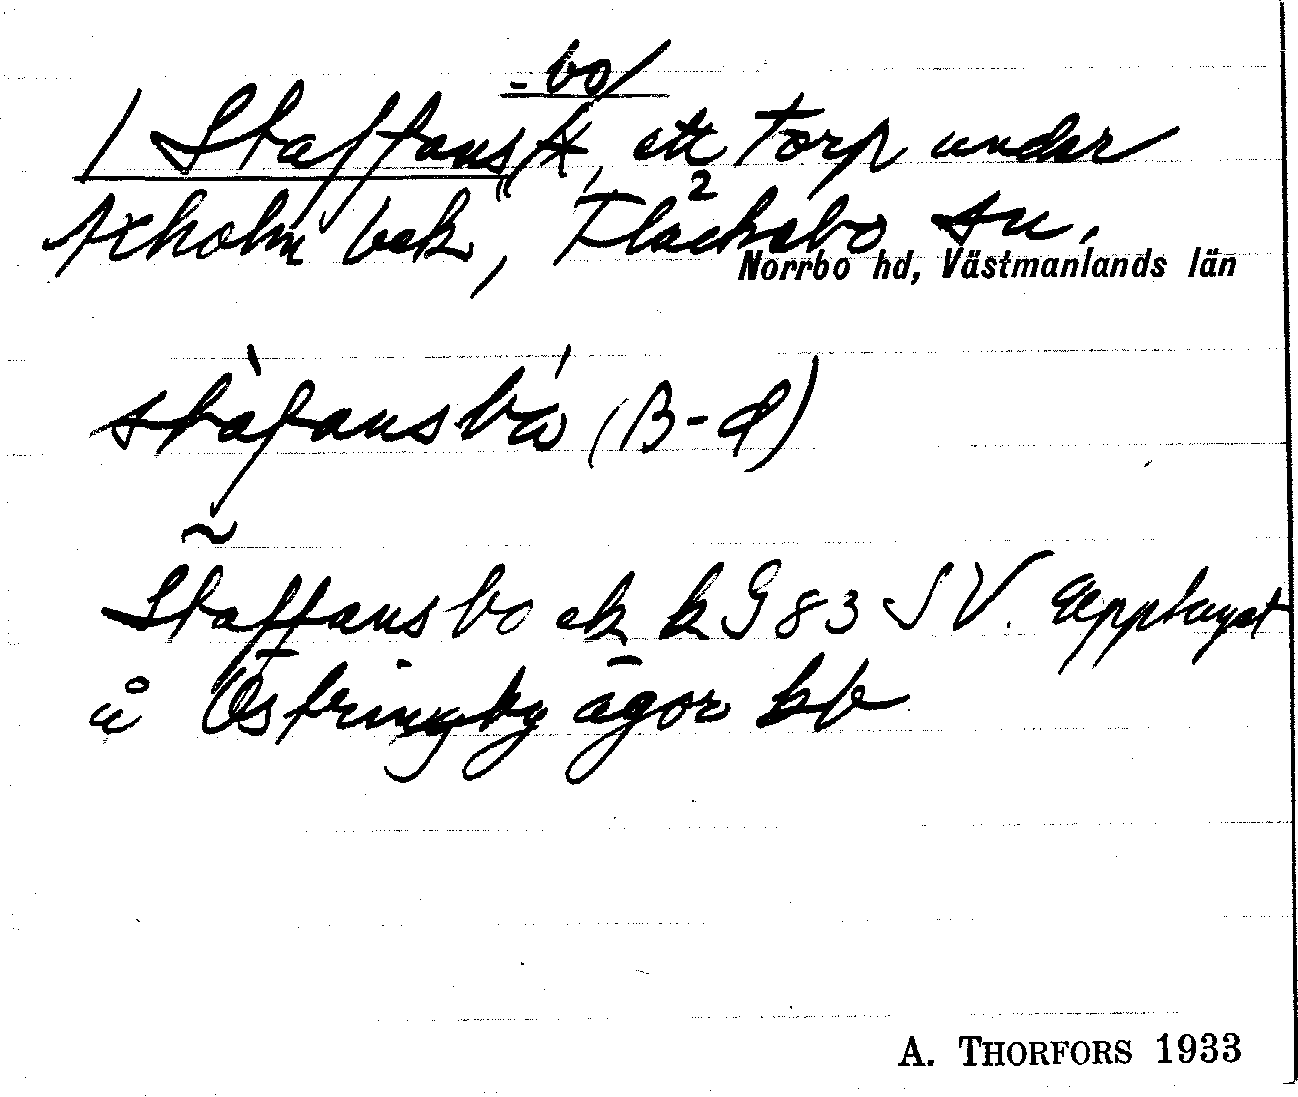 -bo/
/ Staffans/t, ett torp under
Axholm bek, Fläckebo sn.
Norrbo hd, Västmanlands län
stàfansbó (B-d)
Staffansbo ek k G 83 SV. Upptaget
å Östringby ägor kb
A. THORFORS 1933